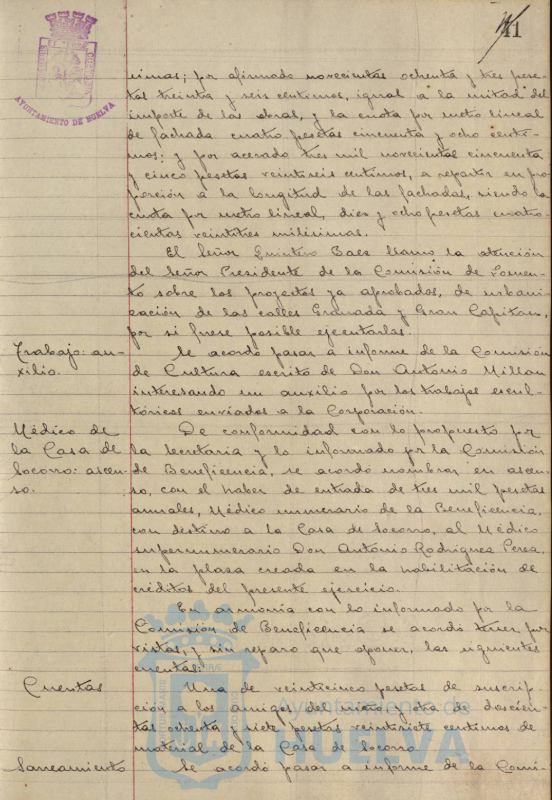 41
AYUNTAMIENTO DE HUELVA
cimas; por afirmado novecientas ochenta y tres pese-
tas treinta y seis centimos, igual a la mitad del
importe de las obras, y la cuota por metro lineal
de fachada cuatro pesetas cincuenta y ocho centi-
mos; y por acerado tres mil novecientas cincuenta
y cinco pesetas veintiseis centimos, a repartir en pro-
porción a la longitud de las fachadas, siendo la
cuota por metro lineal, diez y ocho pesetas cuatro
cientas veintitres milésimas.
El Señor Quintero Baez llamó la atención
del Señor Presidente de la Comisión de Fomen-
to sobre los proyectos ya aprobados, de urbani-
zación de las calles Granada y Gran Capitan,
por si fuese posible ejecutarlas.
Trabajo: au-
xilio.
Se acordó pasar a informe de la Comisión
de Cultura escrito de Don Antonio Millan
interesando un auxilio por los trabajos escul-
tóricos enviados a la Corporación.
Médico de
la Casa de
Socorro: ascen-
so.
De conformidad con lo propuesto por
la Secretaria y lo informado por la Comisión
de Beneficencia, se acordó nombrar en ascen-
so, con el haber de entrada de tres mil pesetas
anuales, Médico numerario de la Beneficencia,
con destino a la Casa de Socorro, al Médico
supernumerario Don Antonio Rodriguez Perea,
en la plaza creada en la habilitación de
créditos del presente ejercicio.
En armonia con lo informado por la
Comisión de Beneficencia se acordó tener por
vistas, y sin reparo que oponer, las siguientes
cuentas:
Cuentas
Una de veinticinco pesetas de suscrip-
ción a los amigos del niño, y otra de doscien-
tas ochenta y siete pesetas veintisiete centimos de
material de la Casa de Socorro.
Saneamiento
Se acordó pasar a informe de la Comi-
Ayuntamiento de
HUELVA